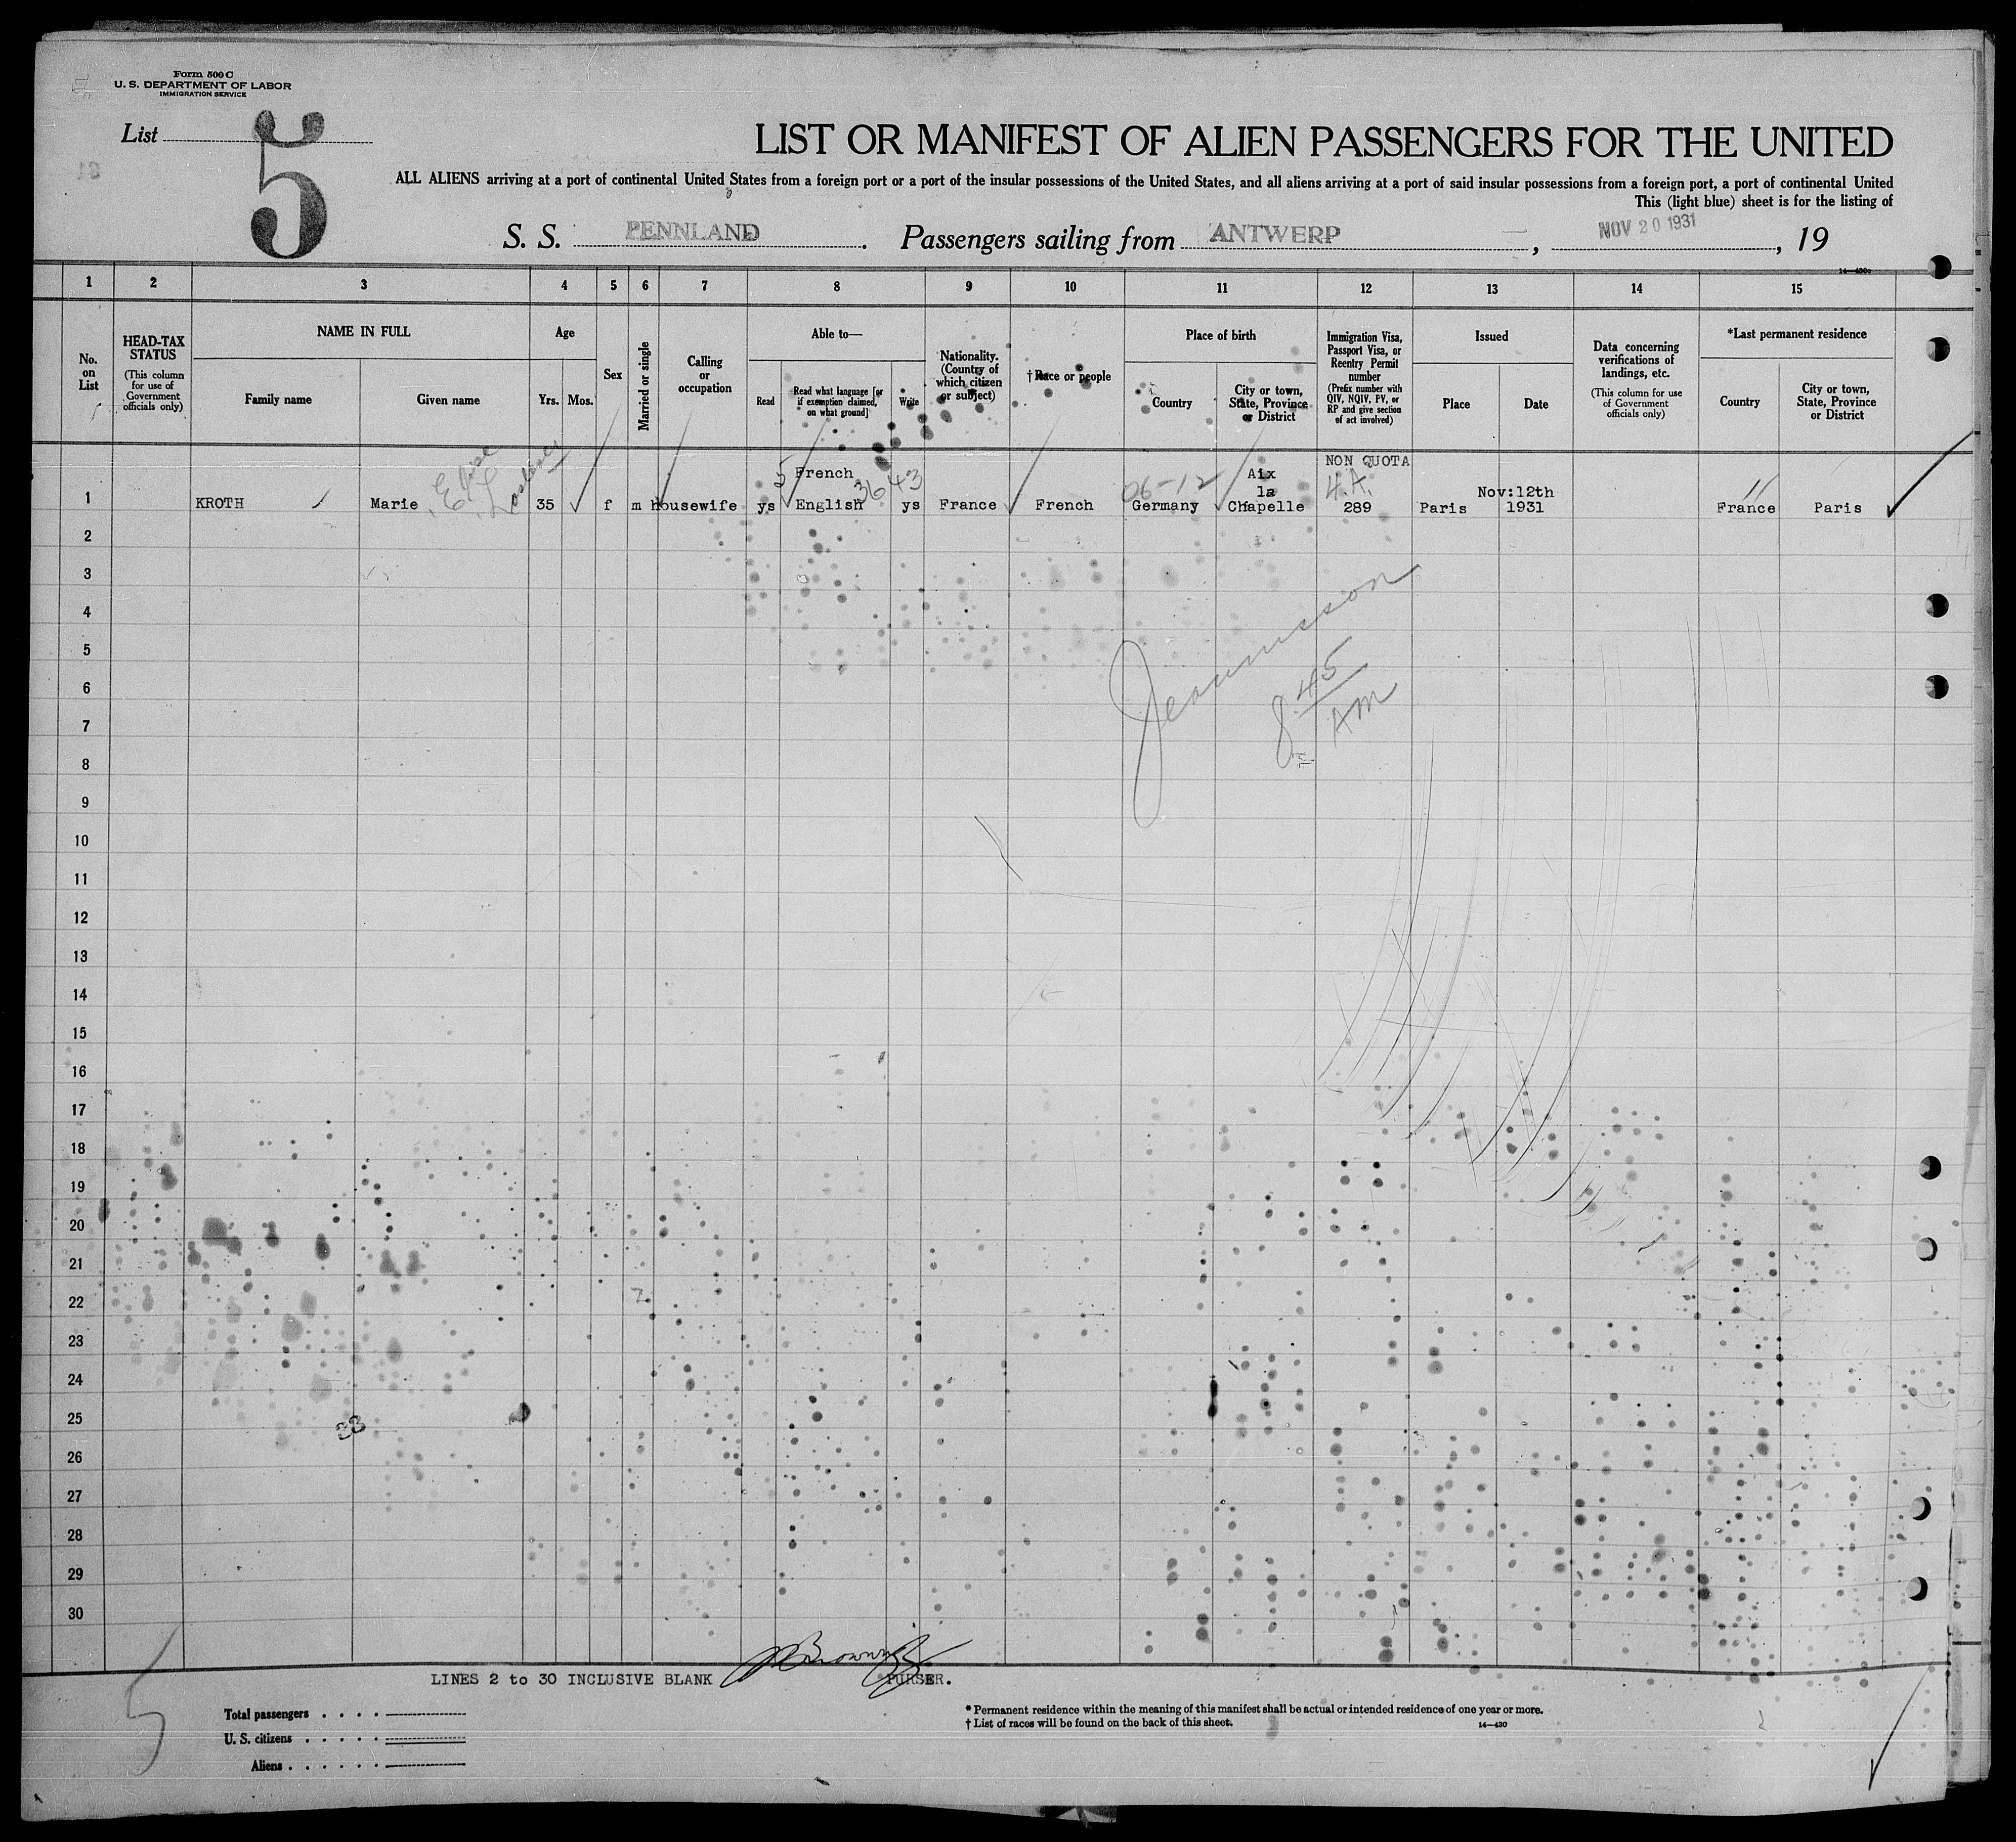 Form 500 C
U. S. DEPARTMENT OF LABOR
IMMIGRATION SERVICE
List 5
LIST OR MANIFEST OF ALIEN PASSENGERS FOR THE UNITED
ALL ALIENS arriving at a port of continental United States from a foreign port or a port of the insular possessions of the United States, and all aliens arriving at a port of said insular possessions from a foreign port, a port of continental United
This (light blue) sheet is for the listing of
S. S. PENNLAND. Passengers sailing from ANTWERP, NOV 20 1931, 19
14—430c
1 2 3 4 5 6 7 8 9 10 11 12 13 14 15
No. on List
HEAD-TAX STATUS
(This column for use of Government officials only)
NAME IN FULL
Family name
Given name
Age
Yrs.
Mos.
Sex
Married or single
Calling or occupation
Able to—
Read
Read what language [or if exemption claimed, on what ground]
Write
Nationality. (Country of which citizen or subject)
†Race or people
Place of birth
Country
City or town, State, Province or District
Immigration Visa, Passport Visa, or Reentry Permit number
(Prefix number with QIV, NQIV, PV, or RP and give section of act involved)
Issued
Place
Date
Data concerning verifications of landings, etc.
(This column for use of Government officials only)
*Last permanent residence
Country
City or town, State, Province or District
Elise
5 French 3643
06-12
Aix
la
NON QUOTA
4.A.
Nov:12th
1 KROTH Marie 35 f m housewife ys English ys France French Germany Chapelle 289 Paris 1931 France Paris
2
3
4
5
6
7
8
9
10
11
12
13
14
15
16
17
18
19
20
21
22
23
24
25
26
27
28
29
30
8 45
AM
33
LINES 2 to 30 INCLUSIVE BLANK PURSER.
5
Total passengers . . . .
U. S. citizens . . . . .
Aliens . . . . . .
* Permanent residence within the meaning of this manifest shall be actual or intended residence of one year or more.
† List of races will be found on the back of this sheet.
14—430